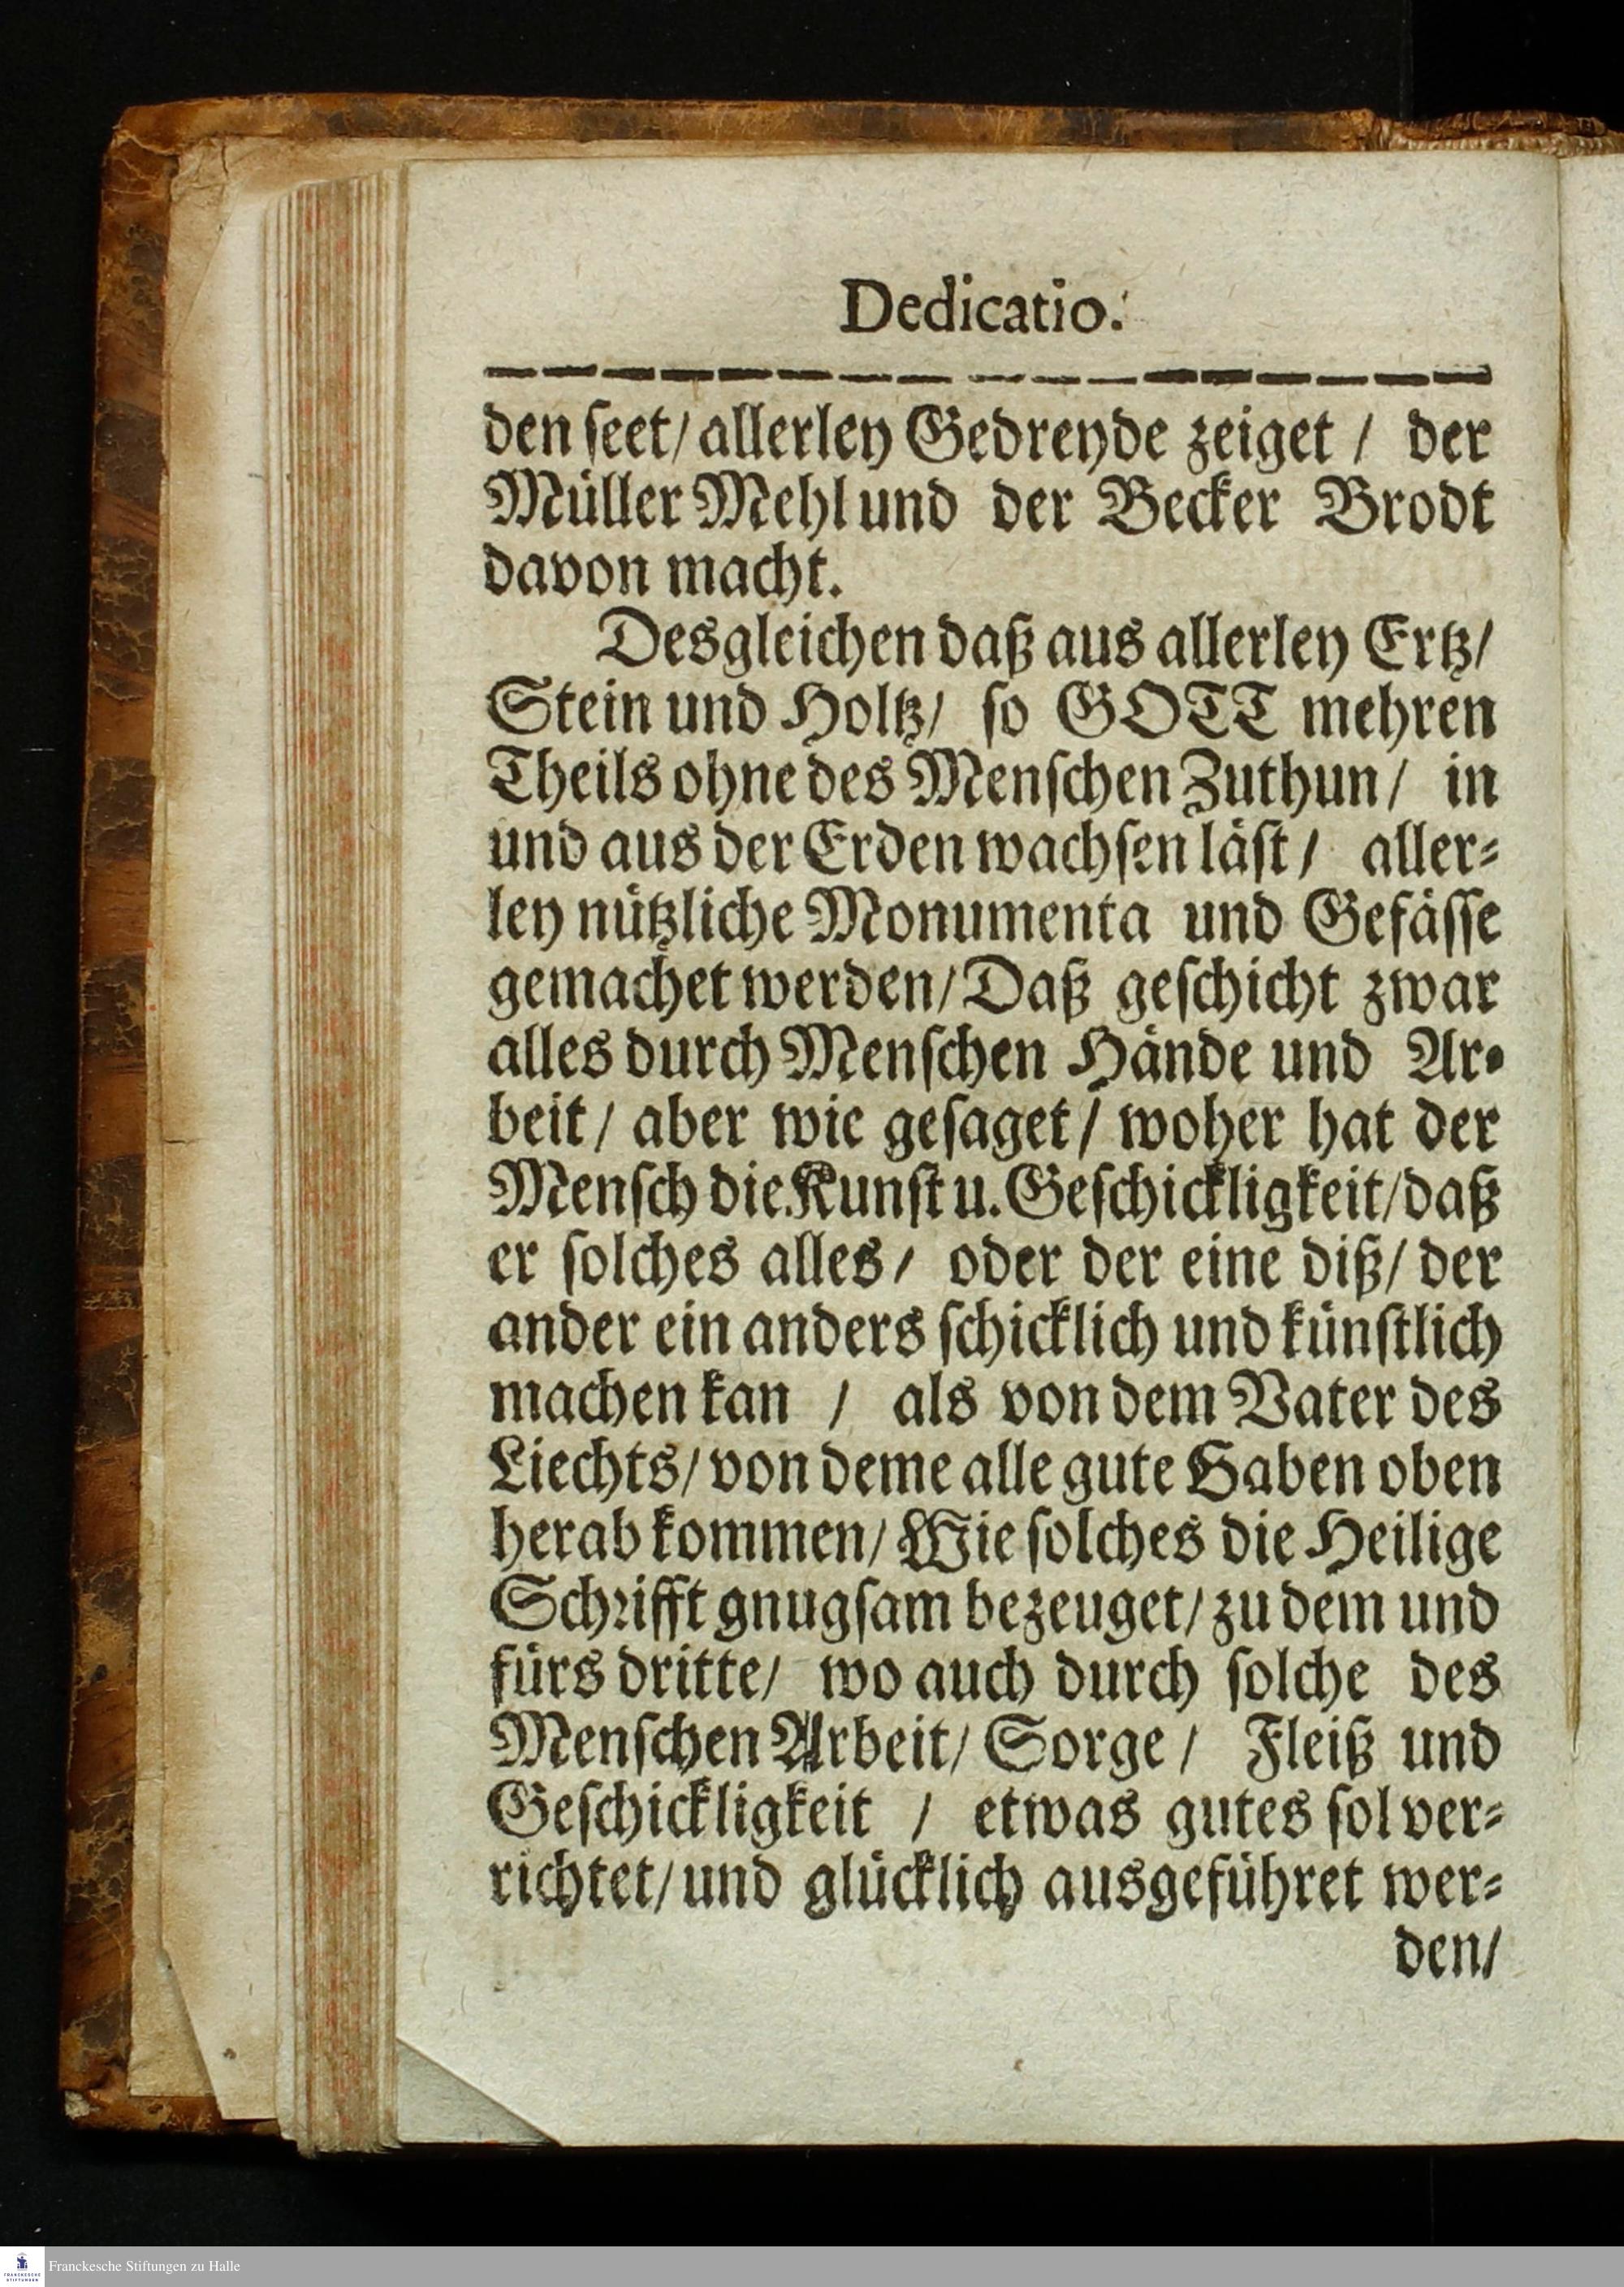 Dedicatio.
den ſeet/ allerley Gedreyde zeiget / der
Müller Mehl und der Becker Brodt
davon macht.
Desgleichen daß aus allerley Ertz/
Stein und Holtz/ ſo GOTT mehren
Theils ohne des Menſchen Zuthun/ in
und aus der Erden wachſen läſt/ aller⸗
ley nützliche Monumenta und Gefäſſe
gemachet werden/ Daß geſchicht zwar
alles durch Menſchen Hände und Ar⸗
beit/ aber wie geſaget/ woher hat der
Menſch die Kunſt u. Geſchickligkeit/ daß
er ſolches alles/ oder der eine diß/ der
ander ein anders ſchicklich und künſtlich
machen kan / als von dem Vater des
Liechts/ von deme alle gute Gaben oben
herab kommen/ Wie ſolches die Heilige
Schrifft gnugſam bezeuget/ zu dem und
fürs dritte/ wo auch durch ſolche des
Menſchen Arbeit/ Sorge/ Fleiß und
Geſchickligkeit / etwas gutes ſol ver⸗
richtet/ und glücklich ausgeführet wer⸗
den/
Franckesche Stiftungen zu Halle
FRANCKESCHE
STIFTUNGEN